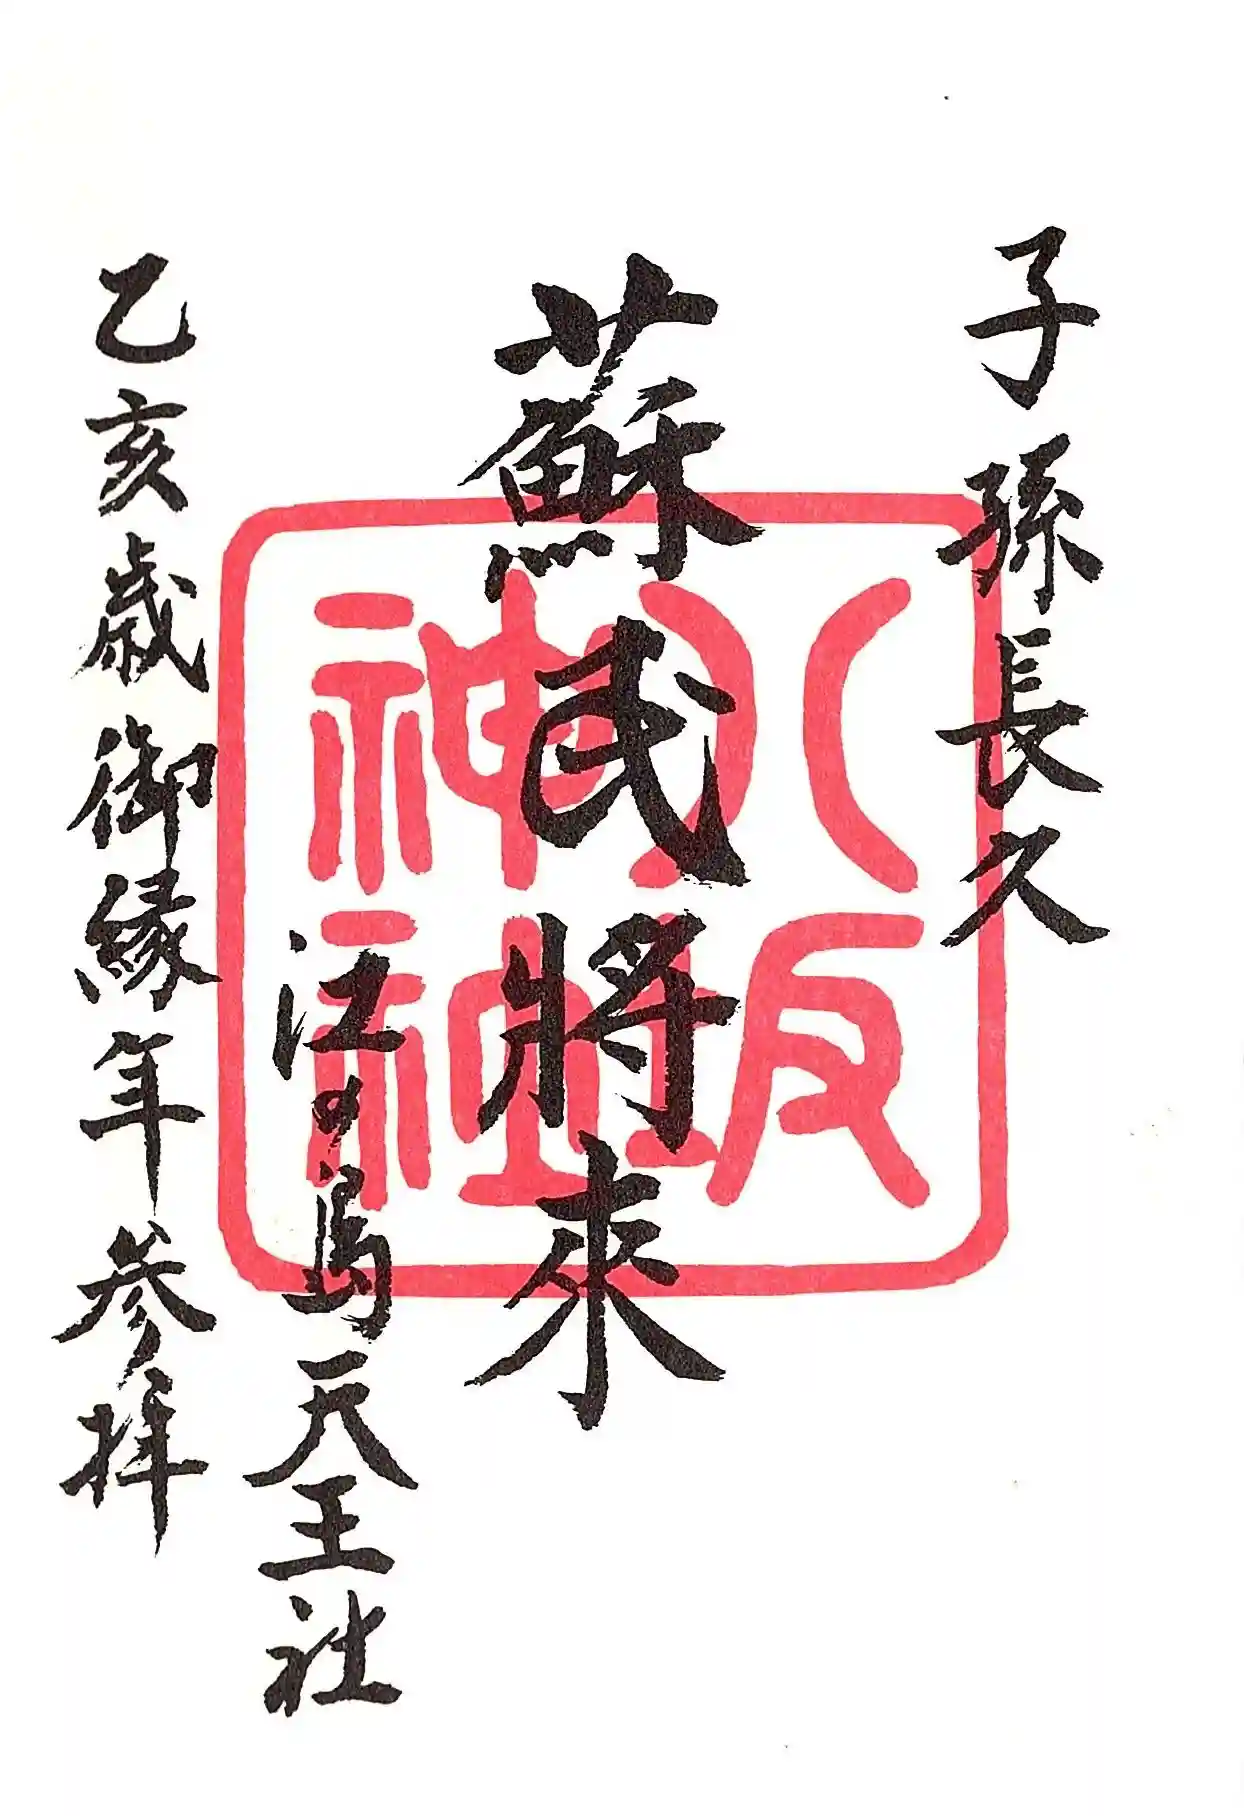 子孫長久
蘇民將來
八坂
神社
江の島天王社
乙亥歳御縁年参拝